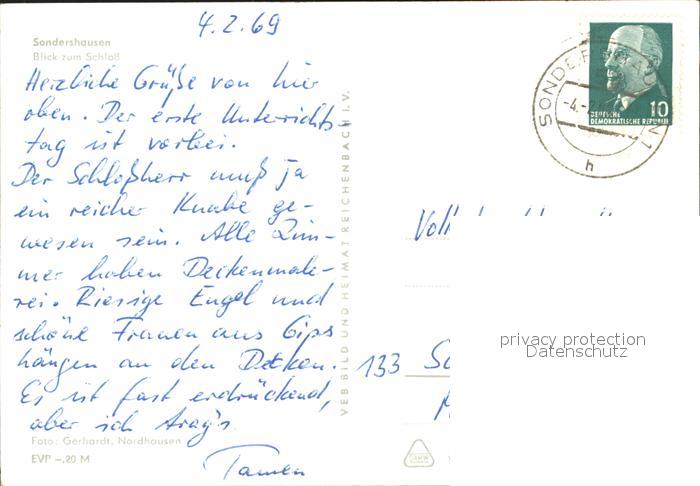 4.2.69
Sondershausen
Blick zum Schloß
Herzliche Grüße von hier
oben. Der erste Unterrichts-
tag ist vorbei.
Der Schloßherr muß ja
ein reicher Knabe ge-
wesen sein. Alle Zim-
mer haben Deckenmale-
rei. Riesige Engel und
schöne Frauen aus Gips
hängen an den Decken.
Es ist fast erdrückend,
aber ich trag's
Foto: Gerhardt, Nordhausen
EVP –,20 M
VEB BILD UND HEIMAT REICHENBACH I. V.
10
DEUTSCHE
DEMOKRATISCHE REPUBLIK
h
133
privacy protection
Datenschutz